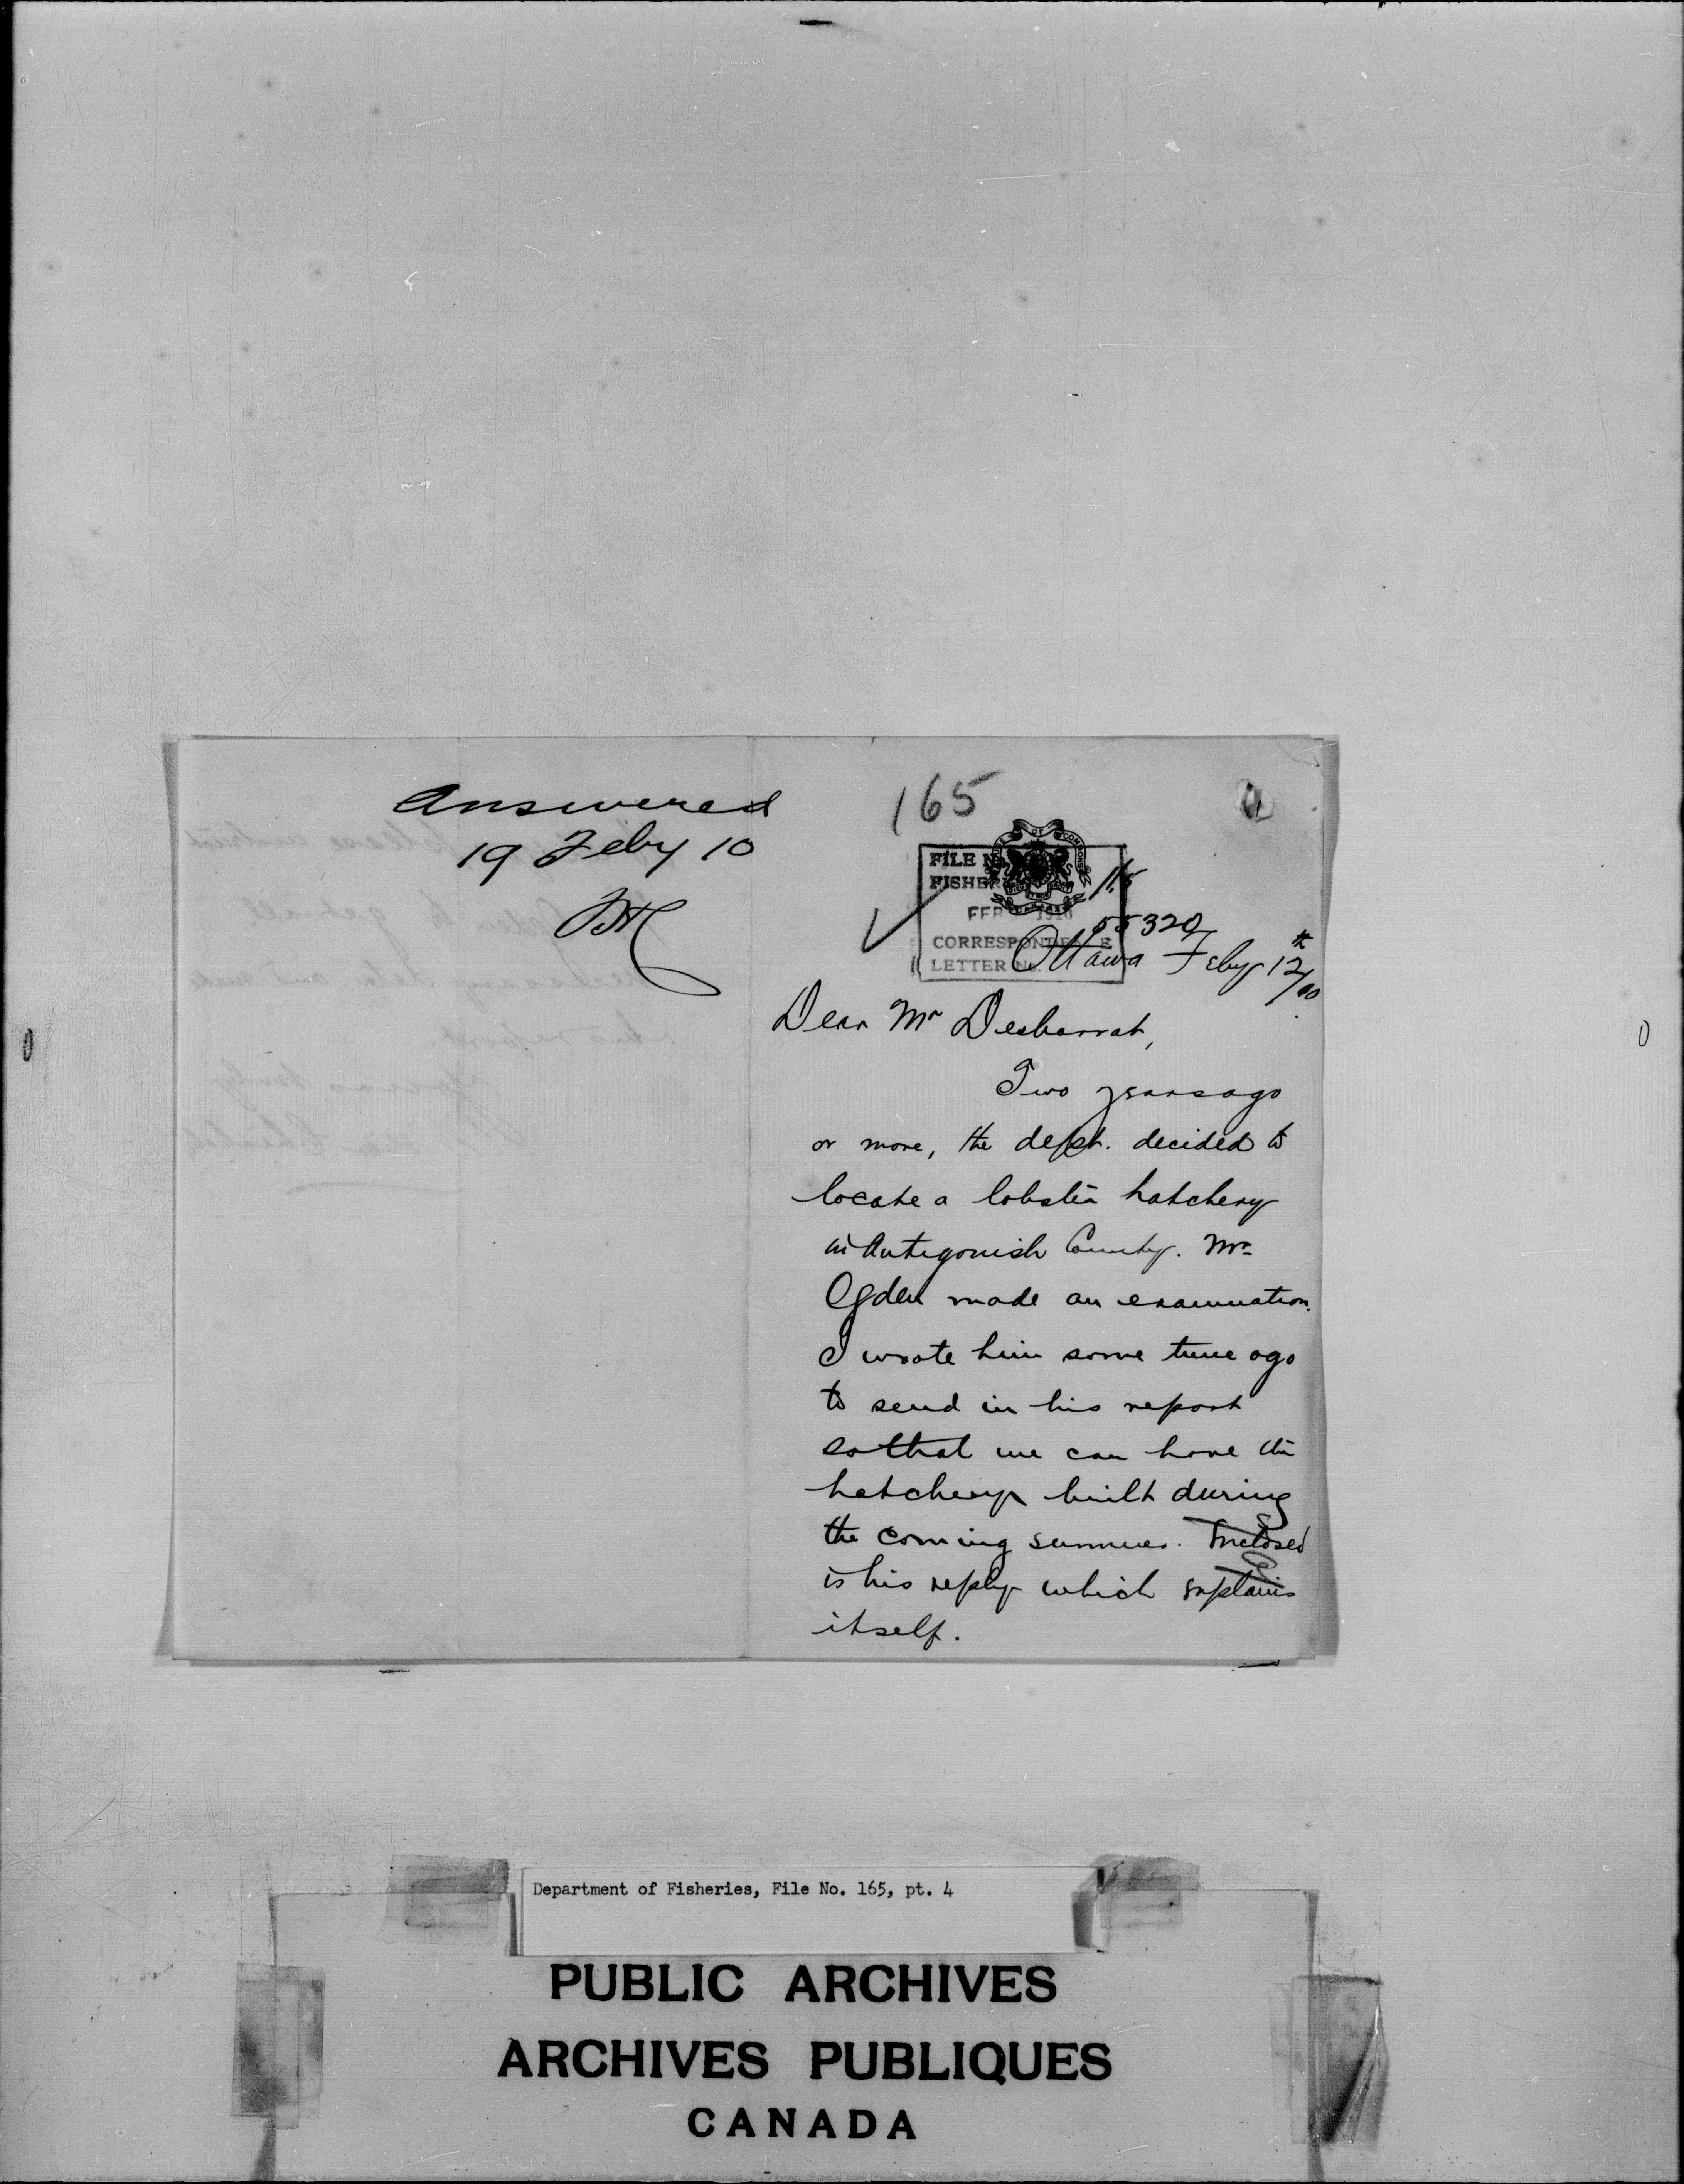 Answered
19 Feby 10
165
FILE No.
FISHER
165
FEB 1910
55320
CORRESPONDENCE
LETTER No.
Ottawa Feby 12th/10
Dear Mr Desbarrat,
Two years ago
or more, the dept. decided to
locate a lobster hatchery
in Antigonish County. Mr
Ogden made an examination.
I wrote him some time ago
to send in his report
so that we can have the
hatchery built during
the coming summer. Enclosed
is his reply which explains
itself.
Department of Fisheries, File No. 165, pt. 4
PUBLIC ARCHIVES
ARCHIVES PUBLIQUES
CANADA